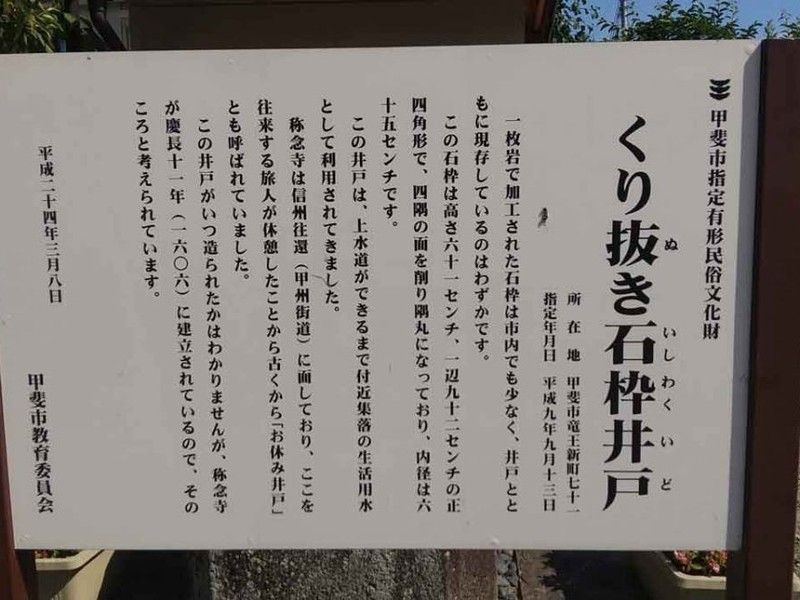 甲斐市指定有形民俗文化財
くり抜き石枠井戸
ぬ
いしわくいど
所在地 甲斐市竜王新町七十一
指定年月日 平成九年九月十三日
一枚岩で加工された石枠は市内でも少なく、井戸とと
もに現存しているのはわずかです。
この石枠は高さ六十一センチ、一辺九十二センチの正
四角形で、四隅の面を削り隅丸になっており、内径は六
十五センチです。
この井戸は、上水道ができるまで付近集落の生活用水
として利用されてきました。
称念寺は信州往還（甲州街道）に面しており、ここを
往来する旅人が休憩したことから古くから「お休み井戸」
とも呼ばれていました。
この井戸がいつ造られたかはわかりませんが、称念寺
が慶長十一年（一六〇六）に建立されているので、その
ころと考えられています。
平成二十四年三月八日
甲斐市教育委員会